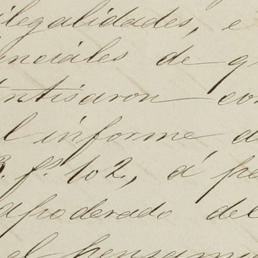 ilegalidades, e
enciales de q
entisaron con
el informe d
f.º 102, á pe
apoderado del
el pensami